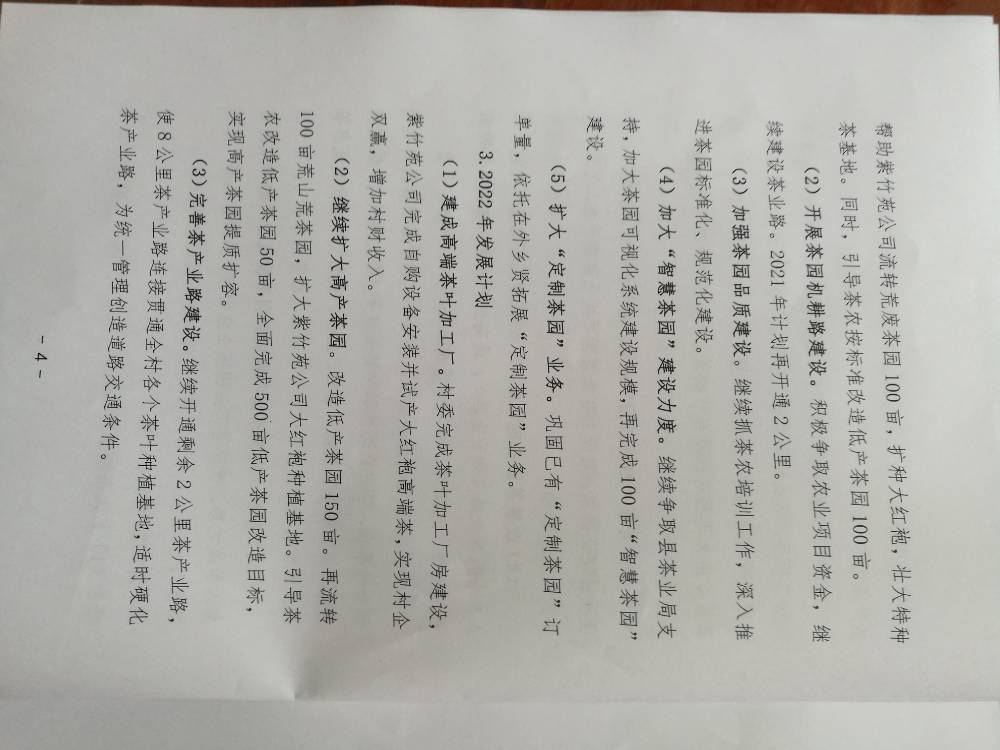 帮助紫竹苑公司流转荒废茶园100亩，扩种大红袍，壮大特种
茶基地。同时，引导茶农按标准改造低产茶园100亩。
（2）开展茶园机耕路建设。积极争取农业项目资金，继
续建设茶业路。2021年计划再开通2公里。
（3）加强茶园品质建设。继续抓茶农培训工作，深入推
进茶园标准化、规范化建设。
（4）加大“智慧茶园”建设力度。继续争取县茶业局支
持，加大茶园可视化系统建设规模，再完成100亩“智慧茶园”
建设。
（5）扩大“定制茶园”业务。巩固已有“定制茶园”订
单量，依托在外乡贤拓展“定制茶园”业务。
3.2022年发展计划
（1）建成高端茶叶加工厂。村委完成茶叶加工厂房建设，
紫竹苑公司完成自购设备安装并试产大红袍高端茶，实现村企
双赢，增加村财收入。
（2）继续扩大高产茶园。改造低产茶园150亩。再流转
100亩荒山荒茶园，扩大紫竹苑公司大红袍种植基地。引导茶
农改造低产茶园50亩，全面完成500亩低产茶园改造目标，
实现高产茶园提质扩容。
（3）完善茶产业路建设。继续开通剩余2公里茶产业路，
使8公里茶产业路连接贯通全村各个茶叶种植基地，适时硬化
茶产业路，为统一管理创造道路交通条件。
- 4 -